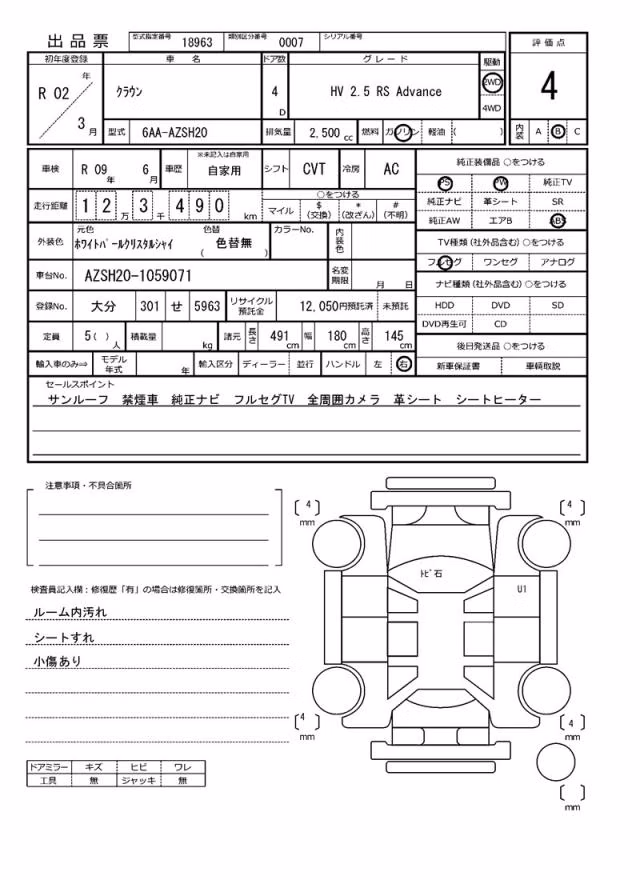 出品票 型式指定番号 18963 類別区分番号 0007 シリアル番号
初年度登録 車名 ドア数 グレード 駆動 評価点
R 02 年 3 月 クラウン 4 D HV 2.5 RS Advance 2WD 4WD 4
型式 6AA-AZSH20 排気量 2,500 cc 燃料 ガソリン 軽油 ( ) 内装 A B C
車検 R 09 年 6 月 車歴 ※未記入は自家用 自家用 シフト CVT 冷房 AC
純正装備品 ○をつける
PS PW 純正TV
純正ナビ 革シート SR
純正AW エアB ABS
走行距離 1 2 万 3 千 4 9 0 km
○をつける
マイル $ (交換) * (改ざん) # (不明)
外装色 元色 ホワイトパールクリスタルシャイ 色替 ( 色替無 ) カラーNo. 内装色
TV種類 (社外品含む) ○をつける
フルセグ ワンセグ アナログ
車台No. AZSH20-1059071 名変期限 月 日
ナビ種類 (社外品含む) ○をつける
HDD DVD SD
DVD再生可 CD
登録No. 大分 301 せ 5963 リサイクル預託金 12,050円預託済 未預託
定員 5 ( ) 人 積載量 kg 諸元 長さ 491 cm 幅 180 cm 高さ 145 cm
後日発送品 ○をつける
新車保証書 車輌取説
輸入車のみ⇒ モデル年式 年 輸入区分 ディーラー 並行 ハンドル 左 右
セールスポイント
サンルーフ 禁煙車 純正ナビ フルセグTV 全周囲カメラ 革シート シートヒーター
注意事項・不具合箇所
検査員記入欄：修復歴「有」の場合は修復箇所・交換箇所を記入
ルーム内汚れ
シートすれ
小傷あり
ドアミラー キズ ヒビ ワレ
工具 無 ジャッキ 無
[ 4 ] mm
[ 4 ] mm
トビ石
U1
[ 4 ] mm
[ 4 ] mm
[ ] mm